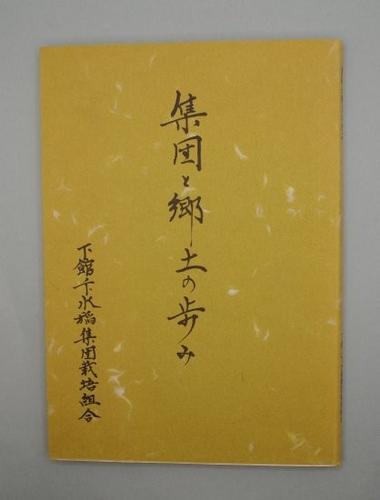 集団と郷土の歩み
下館市水稲集団栽培組合